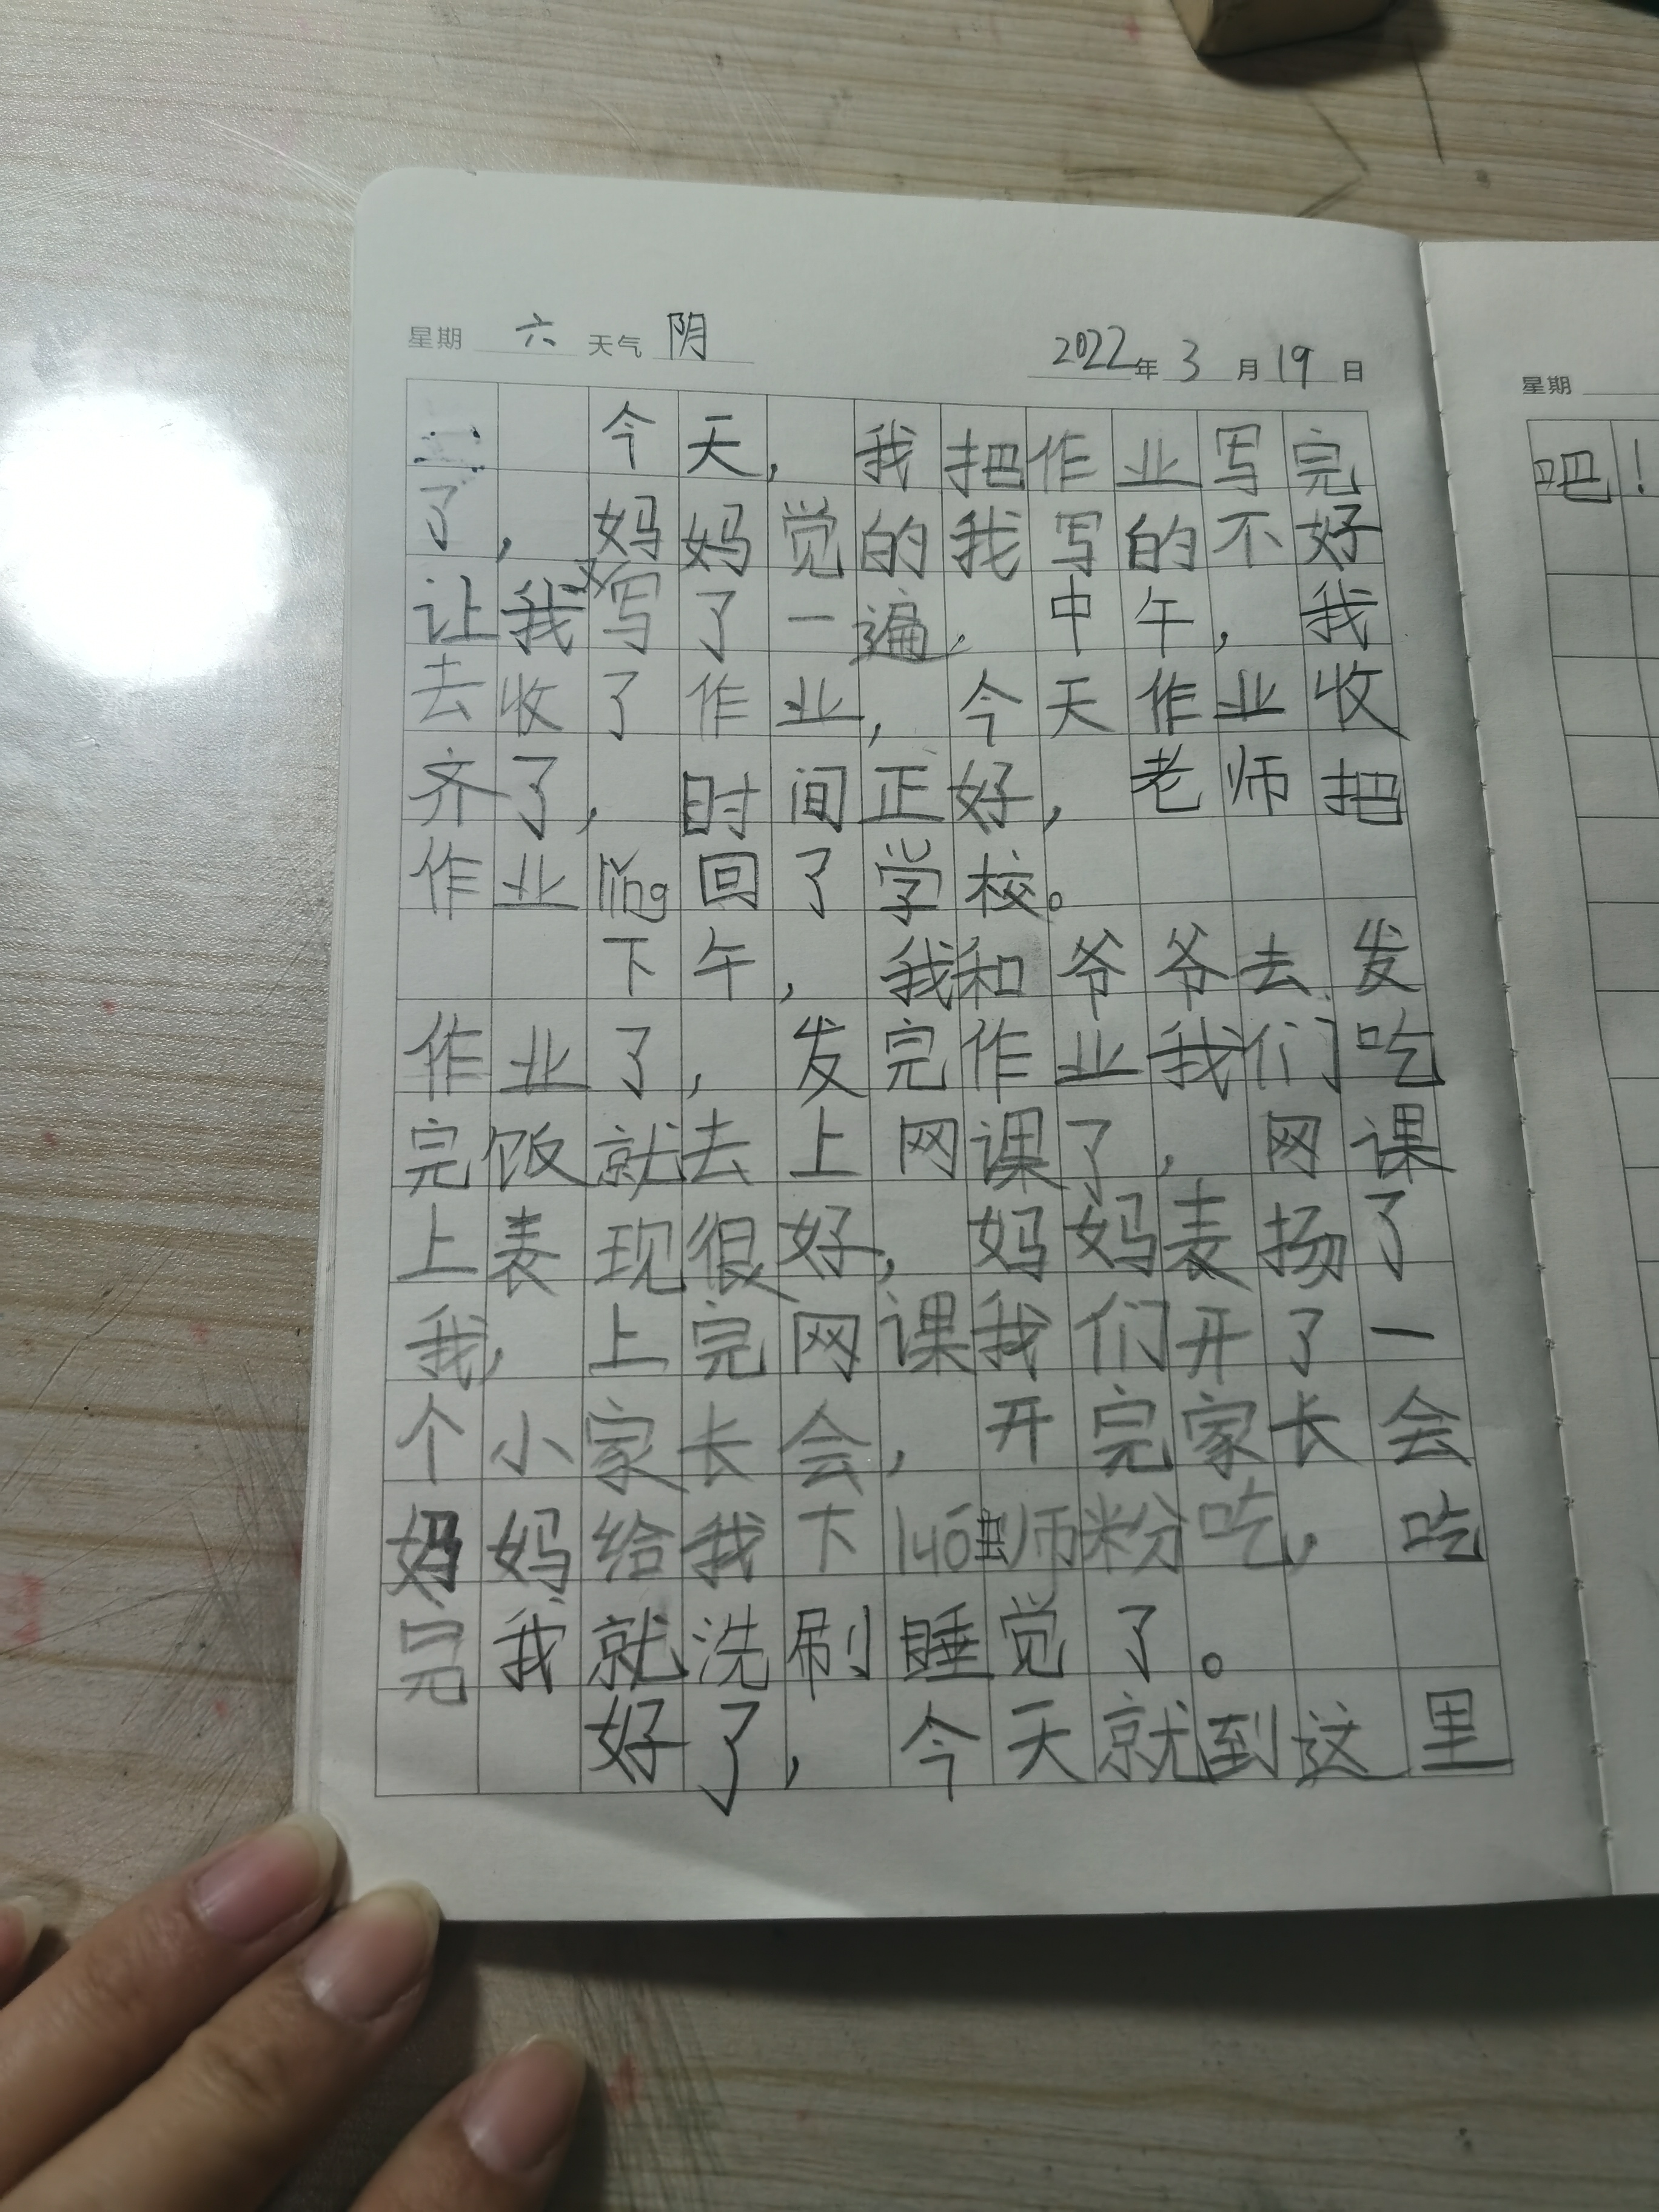 星期 六 天气 阴 2022年 3 月 19 日
今天，我把作业写完
了，妈妈觉的我写的不好
让我又写了一遍，中午，我
去收了作业，今天作业收
齐了，时间正好，老师把
作业līng回了学校。
下午，我和爷爷去发
作业了，发完作业我们吃
完饭就去上网课了，网课
上表现很好，妈妈表扬了
我，上完网课我们开了一
个小家长会，开完家长会
妈妈给我下luó蛳粉吃，吃
完我就洗刷睡觉了。
好了，今天就到这里
星期
吧！